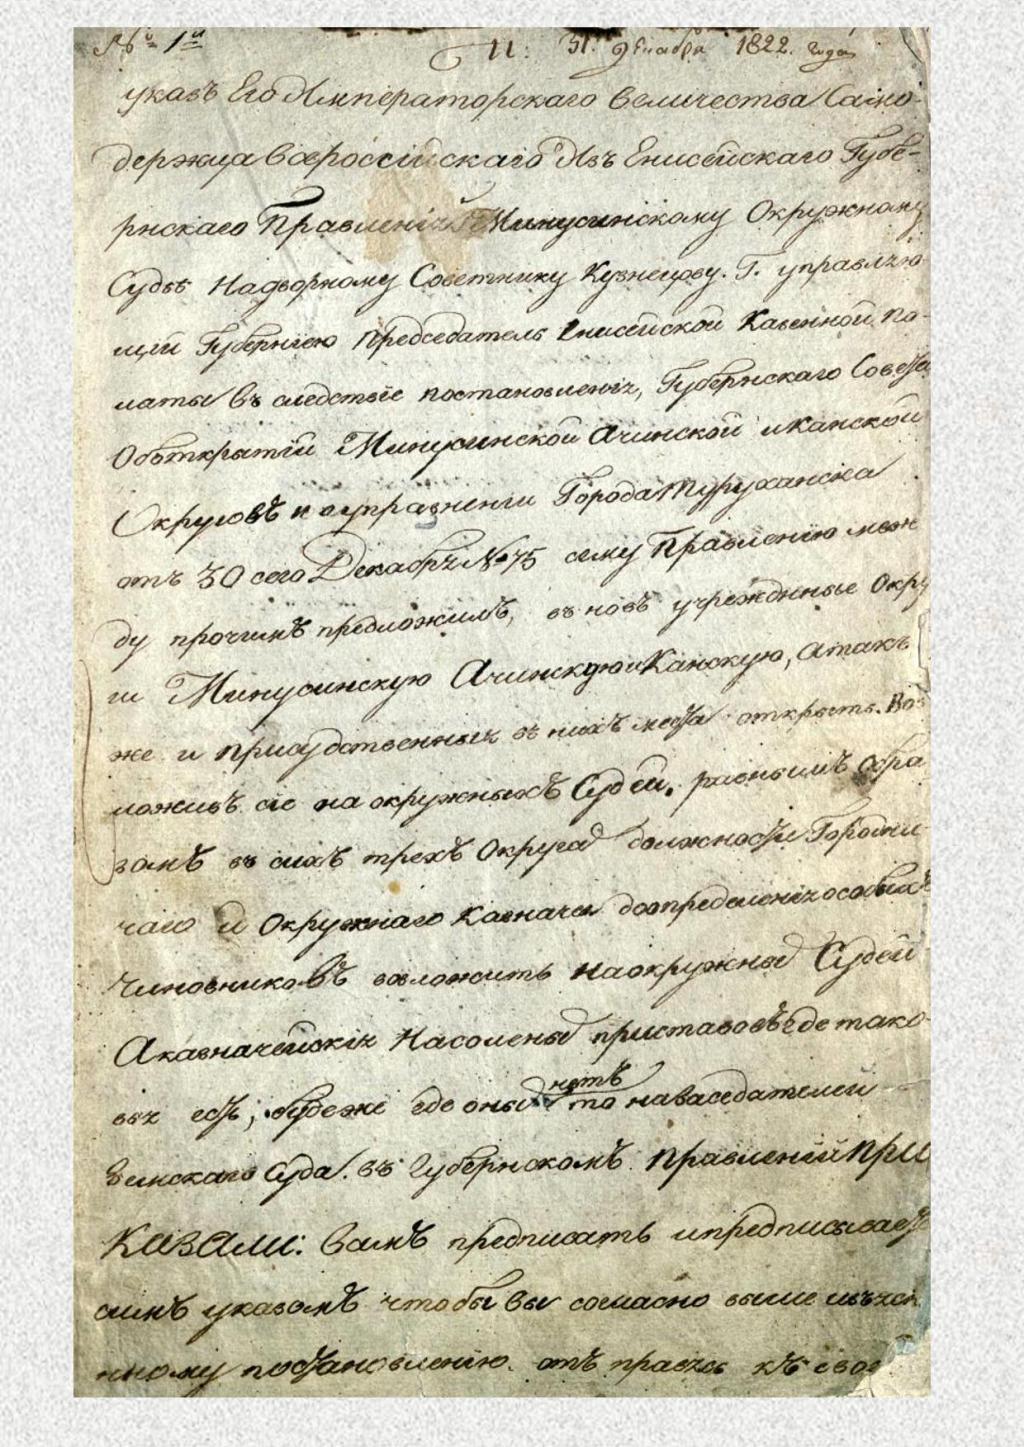 № 1й
31. Декабря 1822. года
указъ Его Императорскаго Величества Само-
держца Всероссійскаго Изъ Енисейскаго Губе-
рнскаго Правленія Минусинскому Окружному
Судье Надворному Советнику Кузнецову. Г. управляю-
щій Губерніею Председатель Енисейской Казенной Па-
латы въ следствіе постановленія, Губернскаго Совета
Оботкрытіи Минусинской Ачинской иКанской
Округовъ и о упразненіи Города Туруханска
отъ 30 сего Декабря № 75 сему Правленію меж
ду прочимъ предложилъ, въ новъ учрежденные Окру
ги Минусинскую Ачинскую иКанскую, атакъ
же и присудственныя въ нихъ места открыть. Воз
ложивъ сіе на окружныхъ Судей. равнымъ обра
зомъ въ сихъ трехъ Округах должности Городни
чаго и Окружнаго Казначея доопределенія особых
Чиновниковъ возложить наокружных Судей
Аказначейскія Насоленых приставовъ где тако-
выя есть, будеже где оных нетъ то наЗаседателей
Земскаго Суда. въ Губернскомъ Правленіи ПРИ
КАЗАЛИ: Вамъ предписать ипредписывается
симъ указомъ чтобы Вы согласно выше изъясне
нному постановленію. отъ правясь къ своей